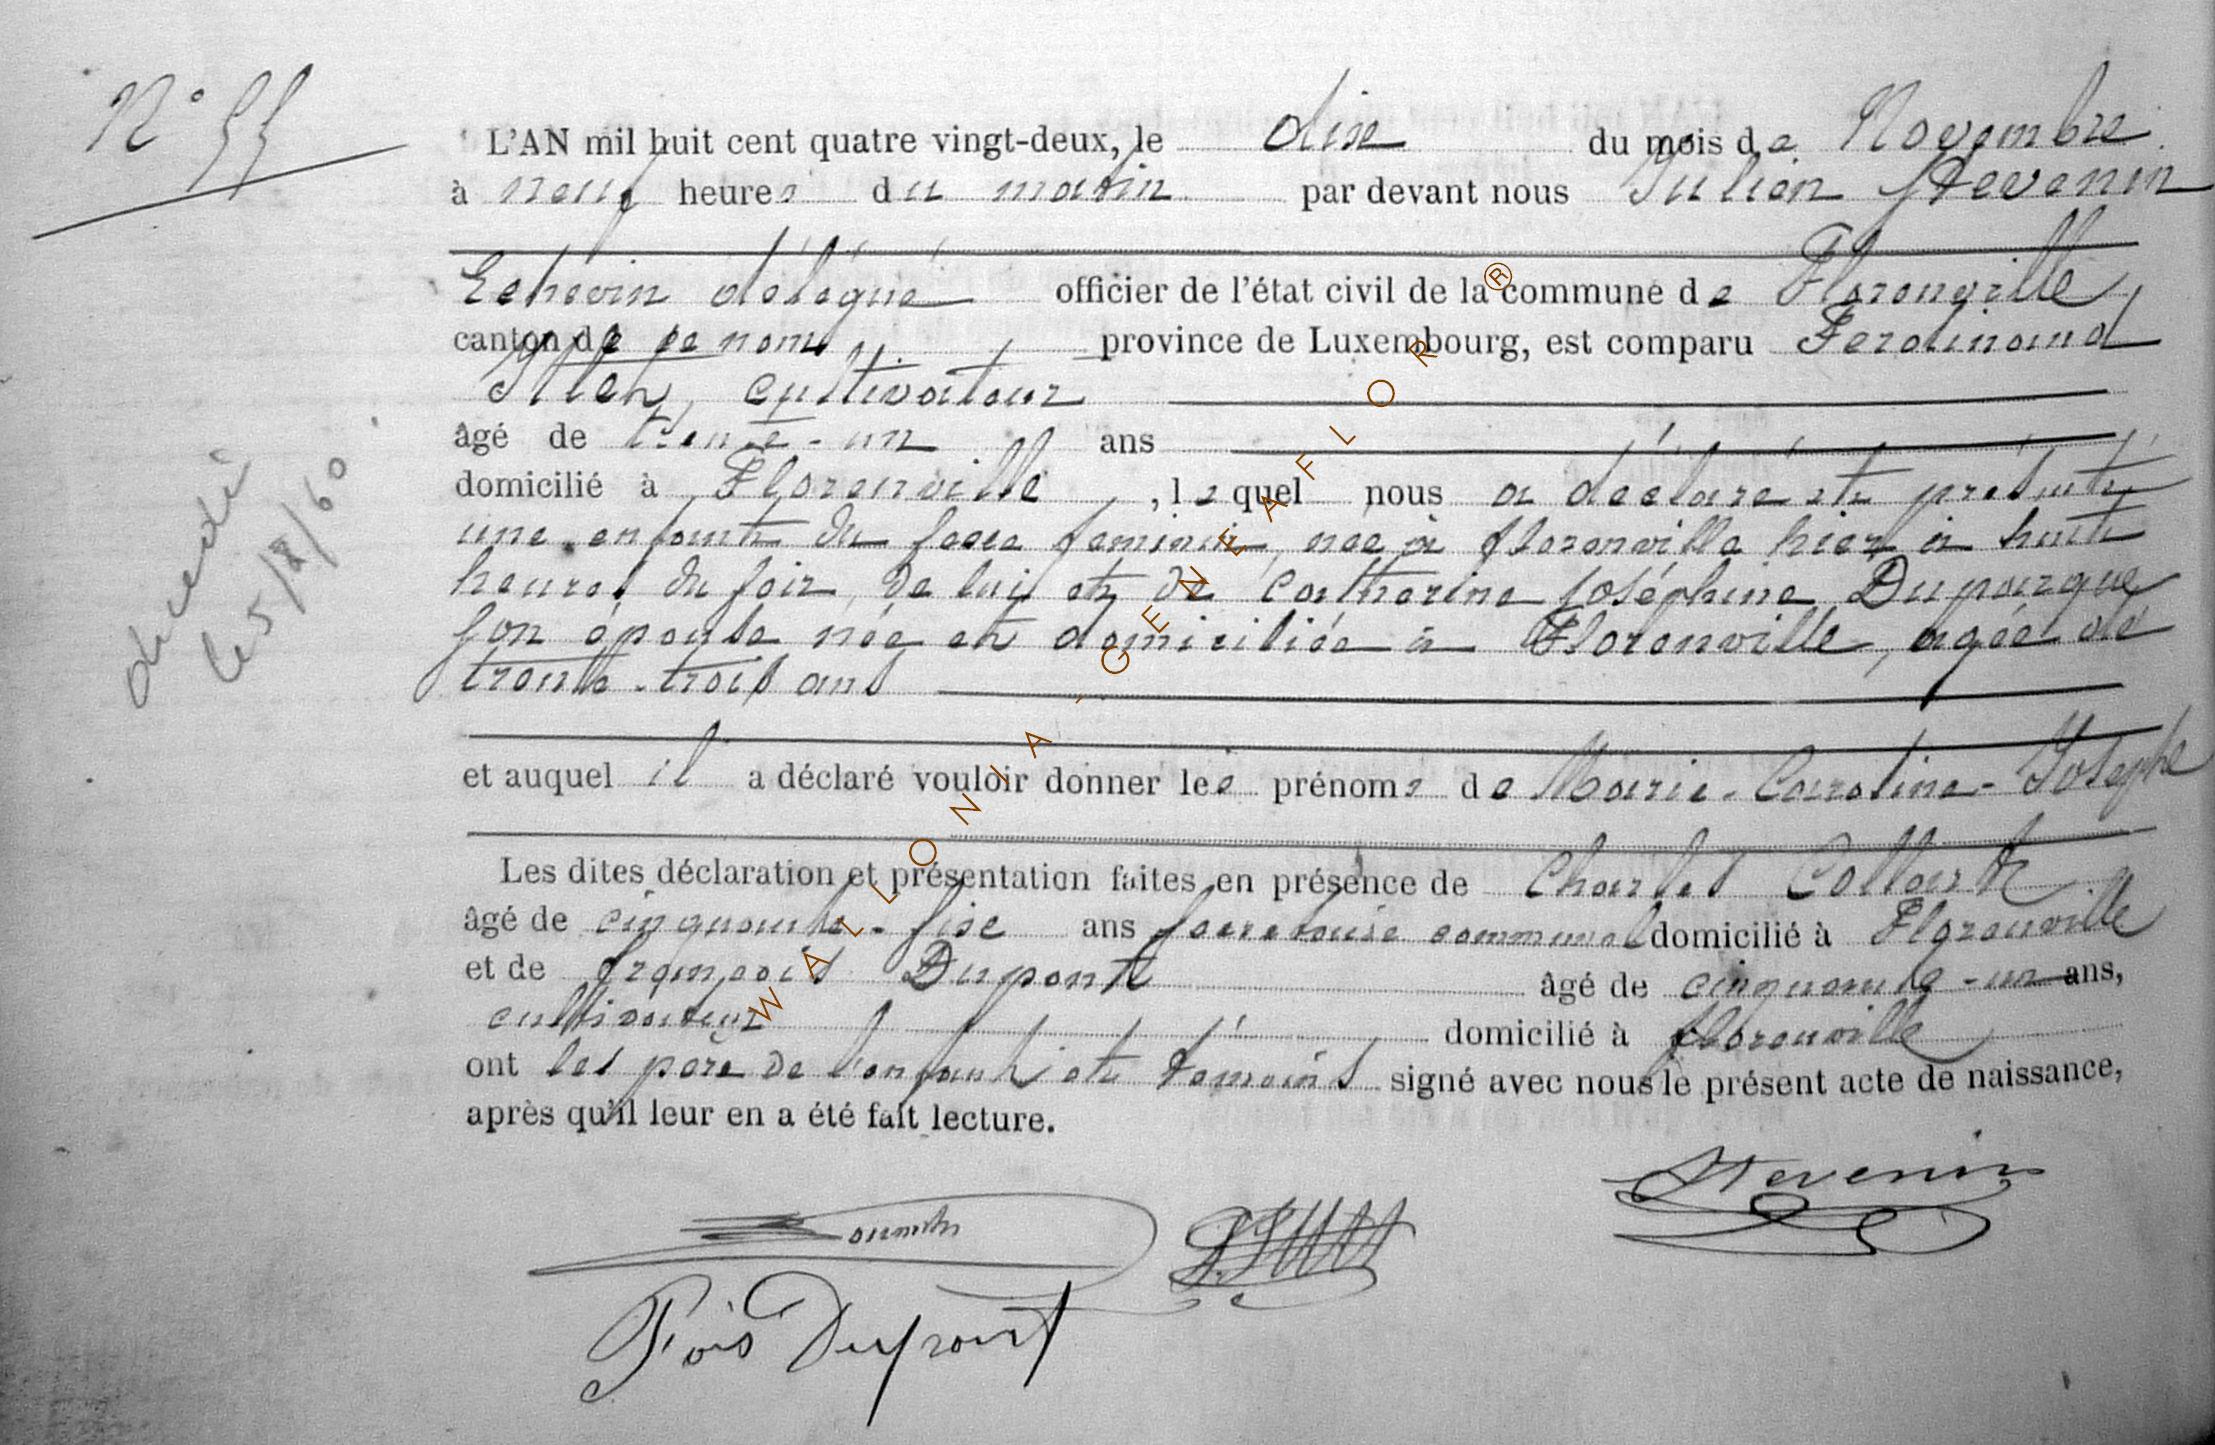 N° 55
L'AN mil huit cent quatre vingt-deux, le dix du mois de Novembre
à neuf heures du matin par devant nous Julien Stevenin
Echevin délégué officier de l'état civil de la commune de Florenville
canton de ce nom province de Luxembourg, est comparu Ferdinand
cultivateur
âgé de trente-un ans
domicilié à Florenville, lequel nous a déclaré et présenté
une enfant du sexe feminin, née à florenville hier à huit
heures du soir, de lui et de Catherine Joséphine Dupourque
son épouse née et domiciliée à Florenville, agée de
trente-trois ans
et auquel il a déclaré vouloir donner les prénoms de Marie-Caroline-Josephe
Les dites déclaration et présentation faites en présence de Charles Collart
âgé de cinquante-six ans secretaire communal domicilié à Florenville
et de françois Dupont âgé de cinquante-un ans,
cultivateur domicilié à florenville
ont les père de l'enfant et témoins signé avec nous le présent acte de naissance,
après qu'il leur en a été fait lecture.
décédé
le 5/8/60
Stevenin
Fçois Dupont
WALLONIA-GENEAFLOR®